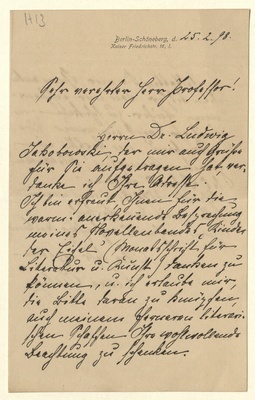 H13
Berlin-Schöneberg, d. 25.2.98.
Kaiser Friedrichstr. 12, I.
Sehr verehrter Herr Professor!
Herrn Dr. Ludwig
Jakobowski, der mir auch Grüße
für Sie aufgetragen hat, ver-
danke ich Ihre Adresse.
Ich bin erfreut, Ihnen für die
warm-anerkennende Besprechung
meines Novellenbandes „Kinder
der Eifel“, Monatsschrift für
Literatur u. Kunst, danken zu
können, u. ich erlaube mir,
die Bitte daran zu knüpfen,
auch meinem ferneren literari-
schen Schaffen Ihre wohlwollende
Beachtung zu schenken.